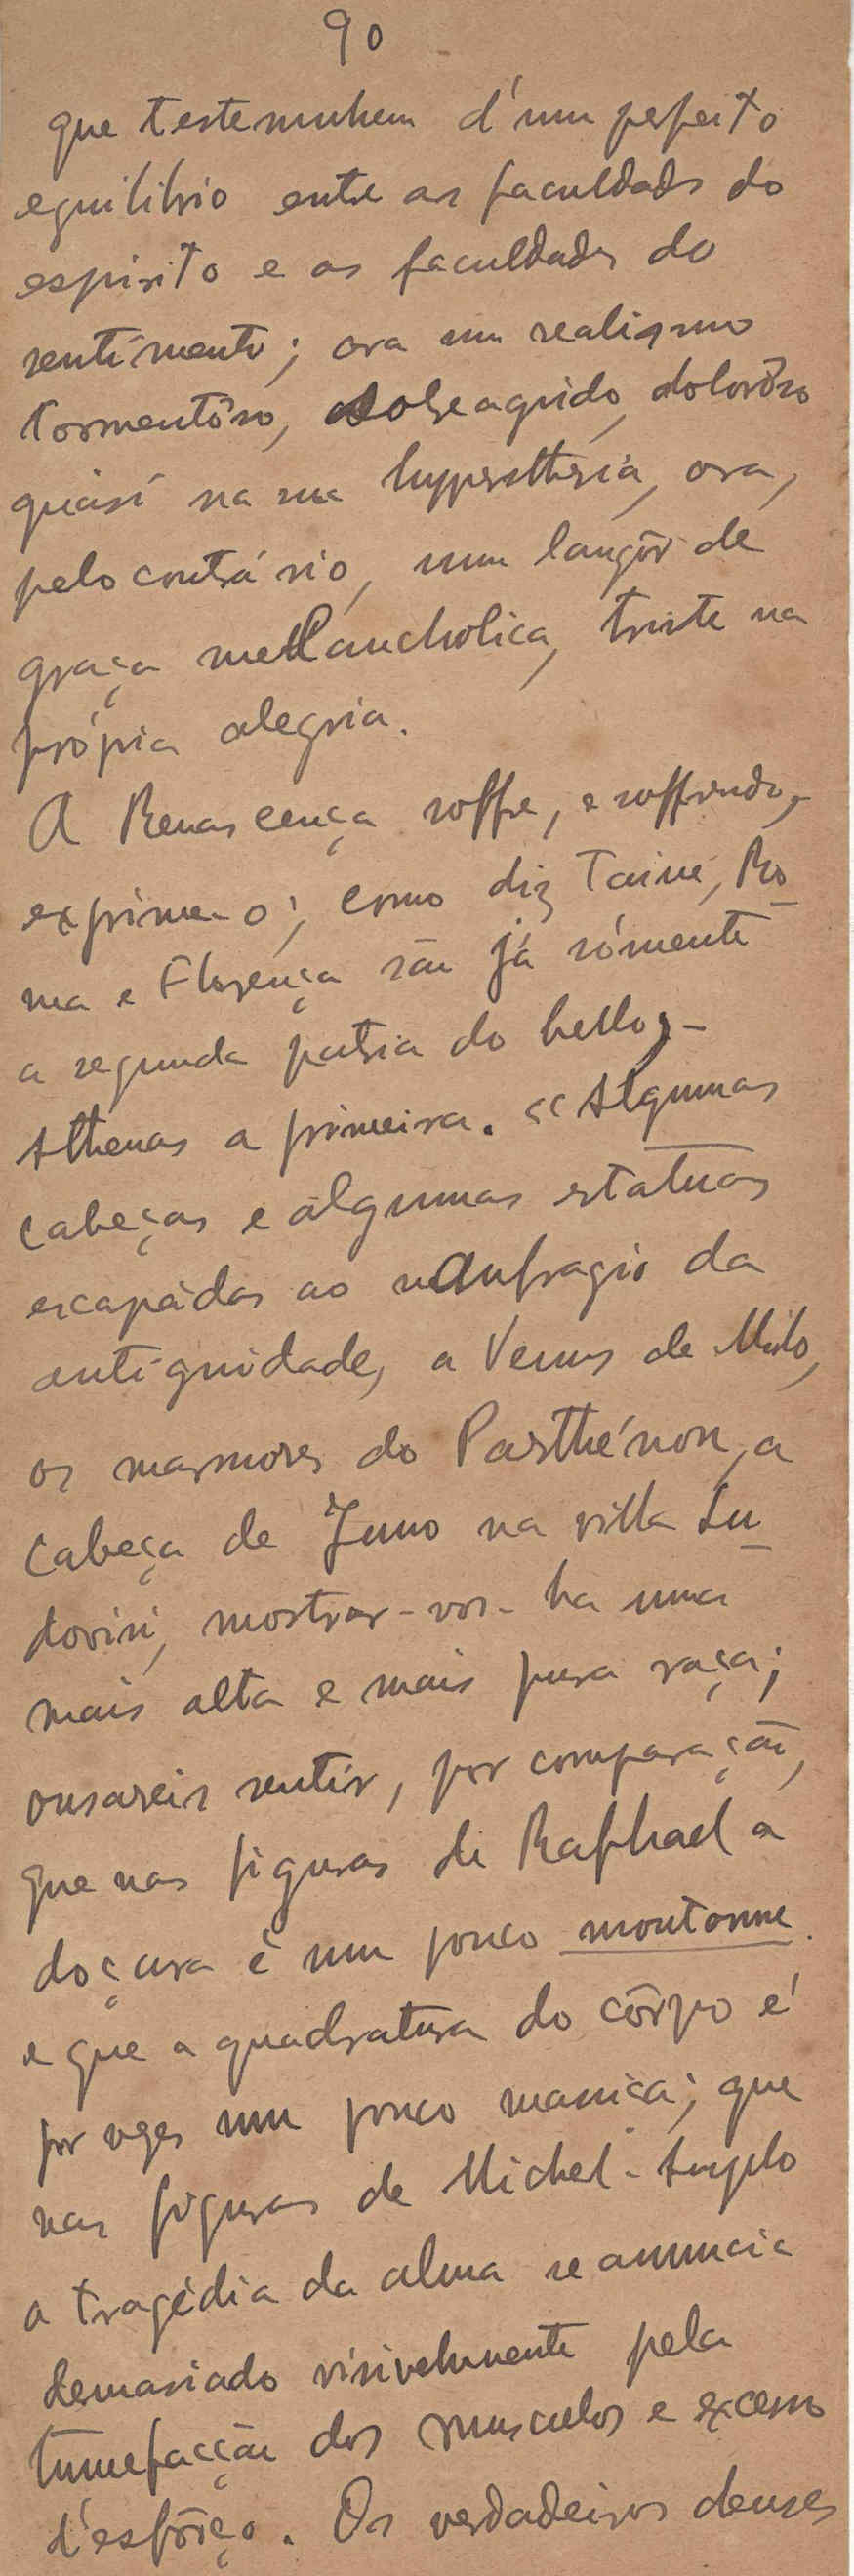 90
que testemunhem d'um perfeito
equilibrio entre as faculdades do
espirito e as faculdades do
sentimento; ora um realismo
tormentôso, sobreaguido, dolorôso
quási na sua hyperstheria, ora,
pelo contrário, um langôr de
graça mellancholica, triste na
própria alegria.
A Renascença soffre, e soffrendo,
exprime-o; como diz Taine, Ro
ma e Florença são já sómente
a segunda patria do bello; -
Athenas a primeira. «Algumas
cabeças e algumas estatuas
escapádas ao naufragio da
antiguidade, a Venus de Milo,
os marmores do Parthénon, a
cabeça de Juno na villa Lu
dovisi, mostrar-vos-ha uma
mais alta e mais pura raça;
ousareis sentir, por comparação,
que nas figuras de Raphael a
doçura é um pouco moutonne
e que a quadratura do côrpo é
por vezes um pouco massiça; que
nas figuras de Michel-Angelo
a tragédia da alma se annuncia
demasiado visivelmente pela
tumefacção dos musculos e excesso
d'esfôrço. Os verdadeiros deuses